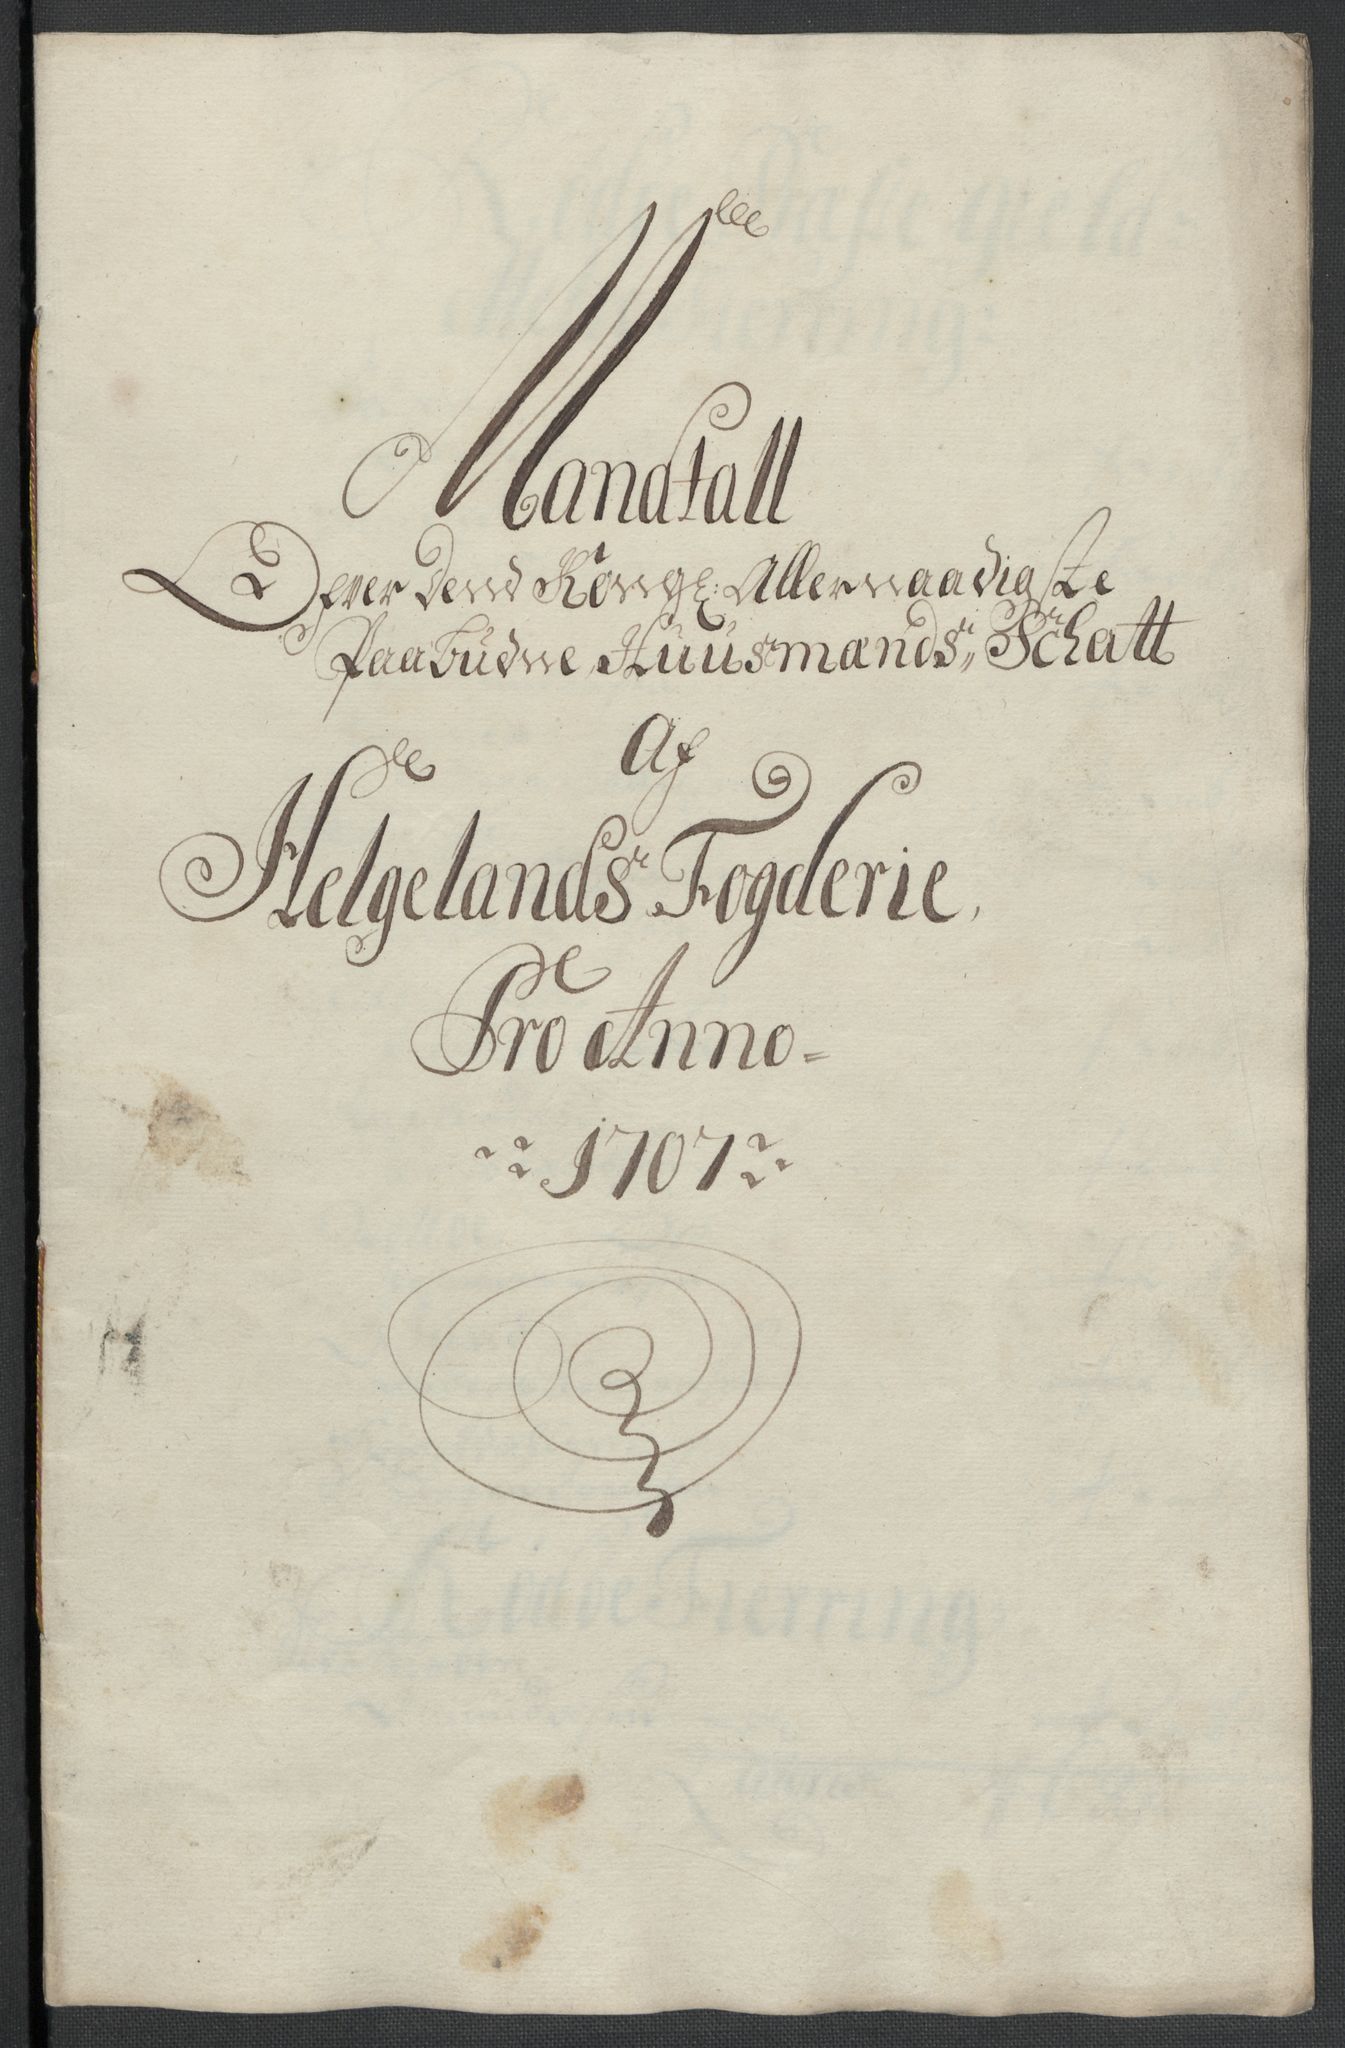 Mandtall
Ofver Dend Kongl: Allernaadigste
Paabudne Huusmands Schatt
Af
Helgelands Fogderie,
Pro Anno
1707